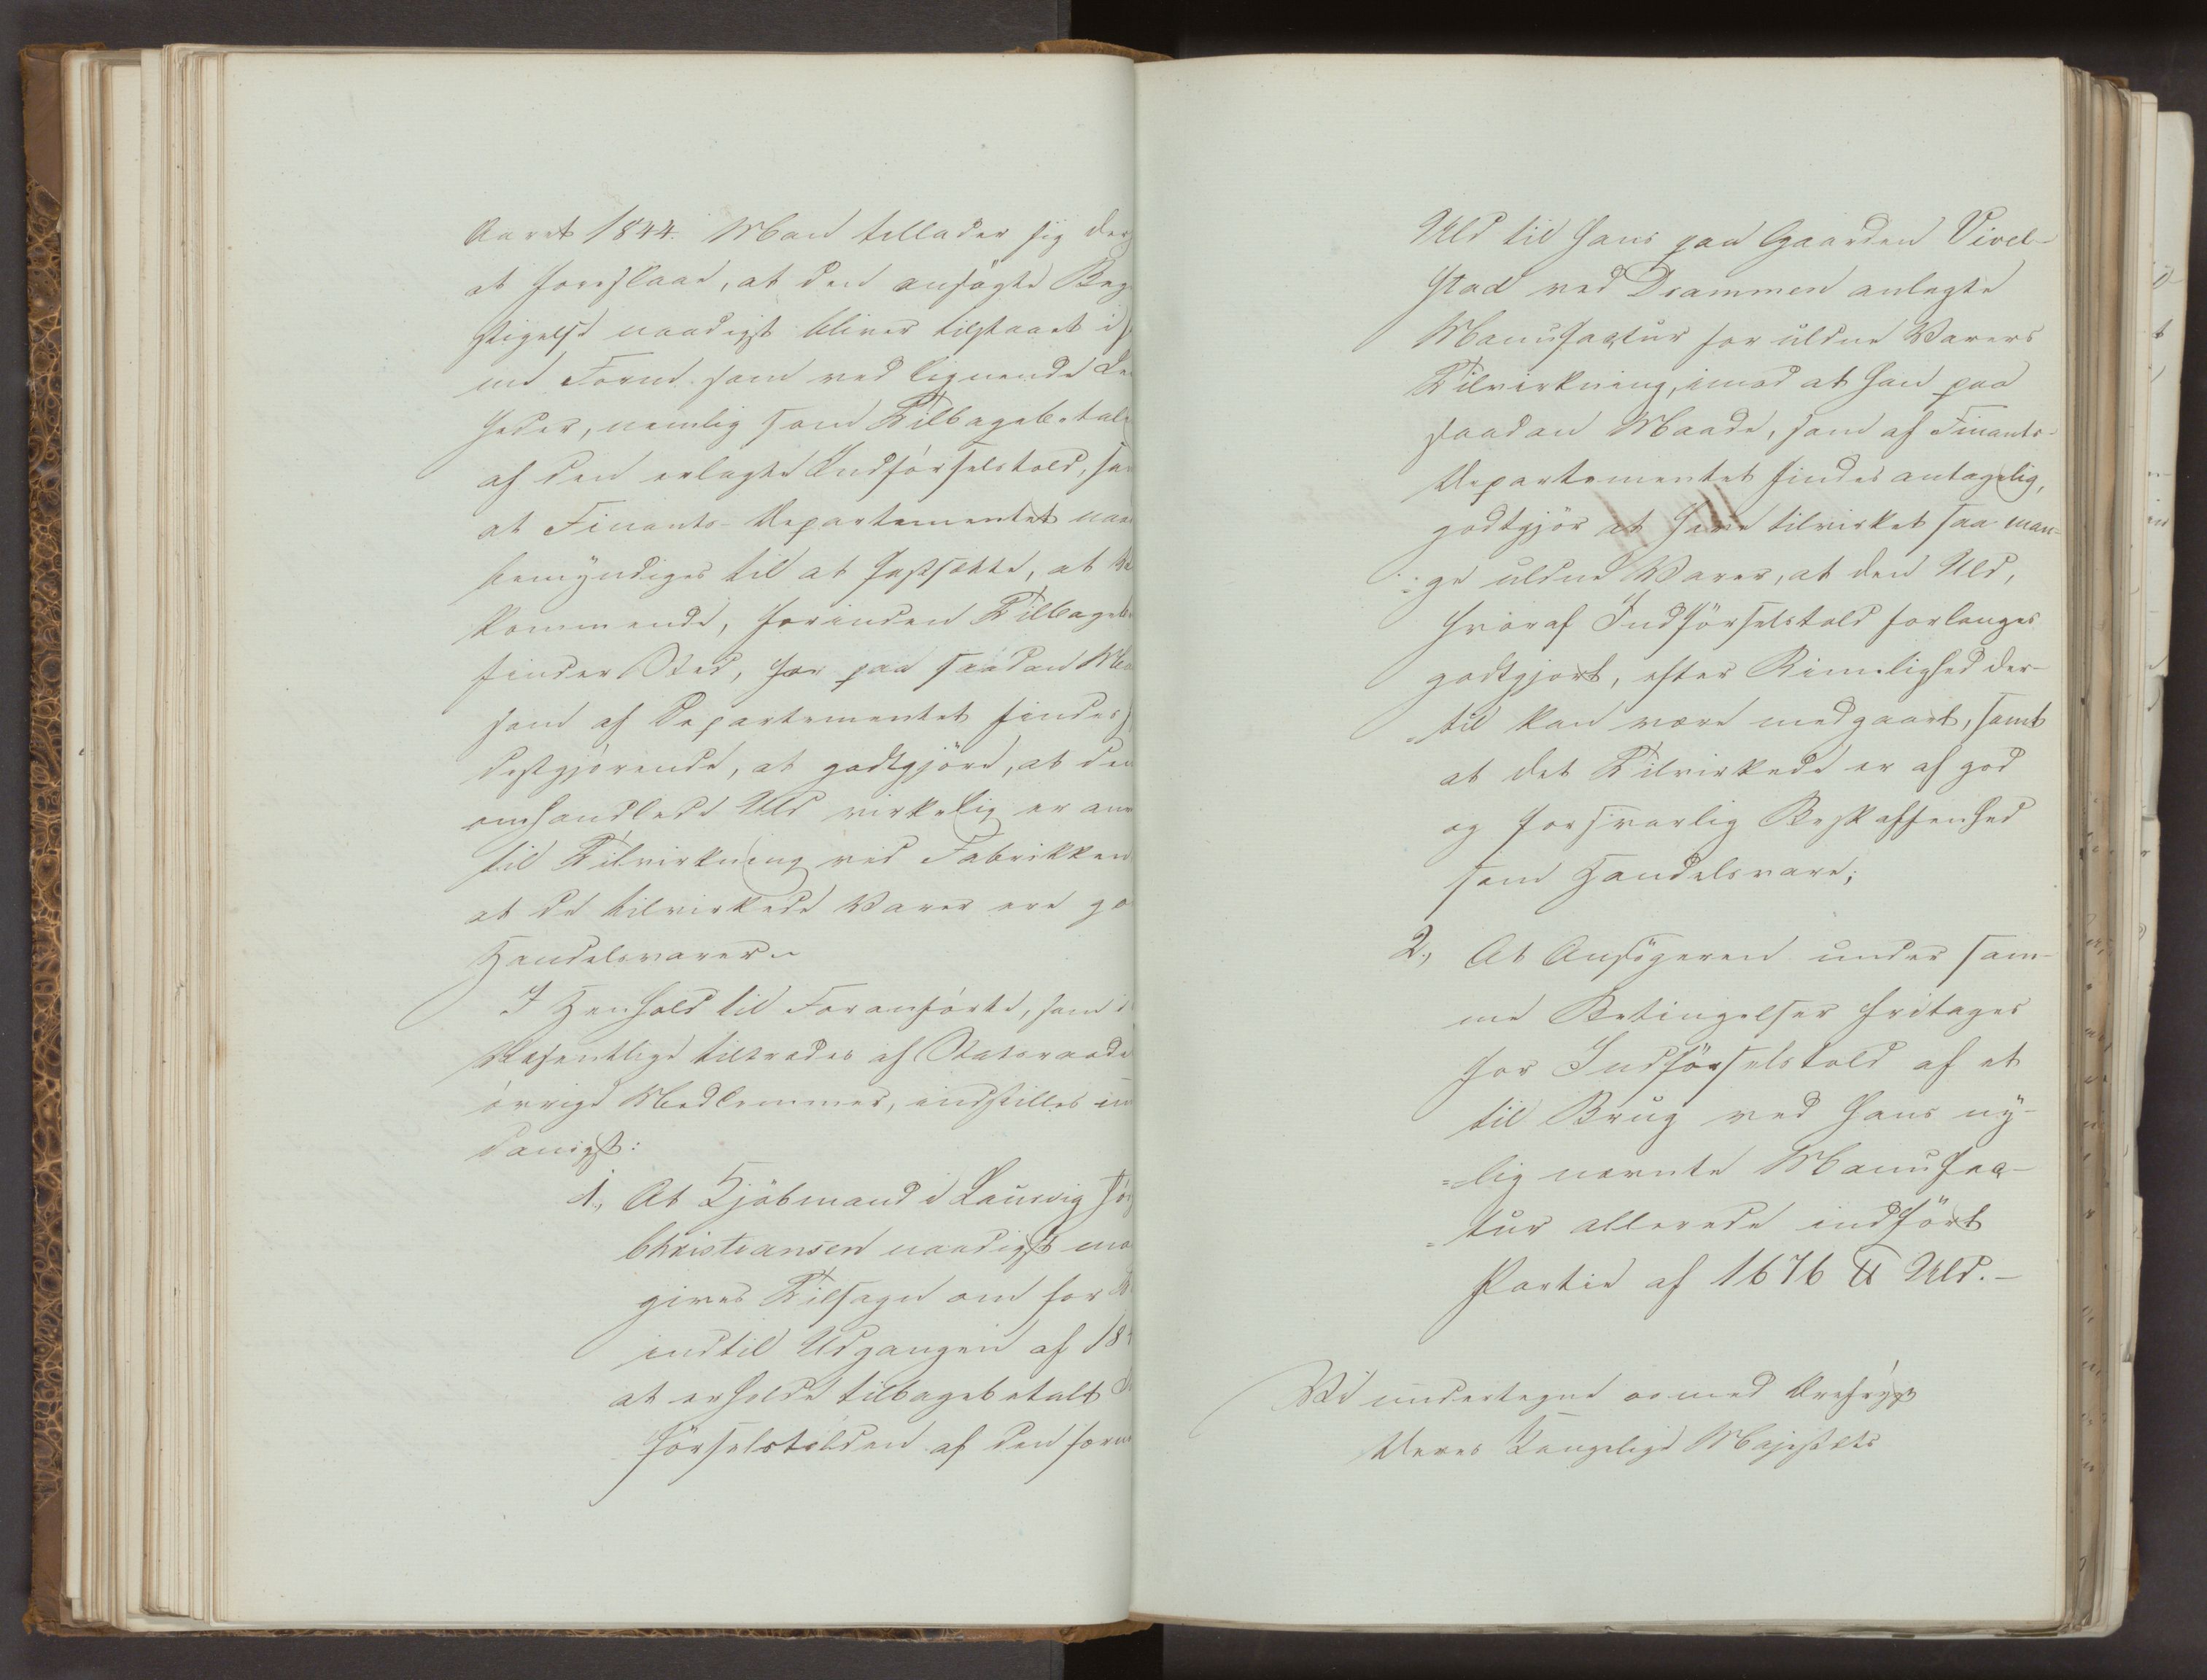 Aaret 1844. Man tillader sig der
at foreslaae, at den ansøgte Beg
stigelse naadigst bliver tilstaaet i s
me Form som ved lignende Le
heder, nemlig som Tilbagebetal
af den erlagte Indførselstold, sa
at Finants-Departementet naa
bemyndiges til at fastsætte, at V
kommende, forinden Tilbageb
finder Sted, har paa saadan Ma
som af Departementet findes
destgjørende, at godtgjøre, at den
omhandlede Uld virkelig er anv
til Tilvirkning ved Fabrikken
at de tilvirkede Varer ere go
Handelsvarer.
I Henhold til Foranførte, som i
Væsentlige tiltrædes af Statsraadet
øvrige Medlemmer, indstilles un
danigst:
1., At Kjøbmand i Laurvig Jør
Christiansen naadigst maa
gives Tilsagn om for
indtil Udgangen af 184
at erholde tilbagebetalt
førselstolden af den forn
Uld til hans paa Gaarden Vivel-
stad ved Drammen anlagte
Manufactur for uldne Varers
Tilvirkning, imod at han paa
saadan Maade, som af Finants-
Departementet findes antagelig,
godtgjør at have tilvirket saa man-
ge uldne Varer, at den Uld,
hvoraf Indførselstold forlanges
godtgjort, efter Rimelighed der-
til kan være medgaaet, samt
at det Tilvirkede er af god
og forsvarlig Beskaffenhed
som Handelsvare;
2., At Ansøgeren under sam-
me Betingelser fritages
for Indførselstold af et
til Brug ved hans ny-
=lig nævnte Manufac-
=tur allerede indført
Partie af 1676 ℔ Uld.-
Vi undertegne os med Ærefrygt
Deres Kongelige Majestæts